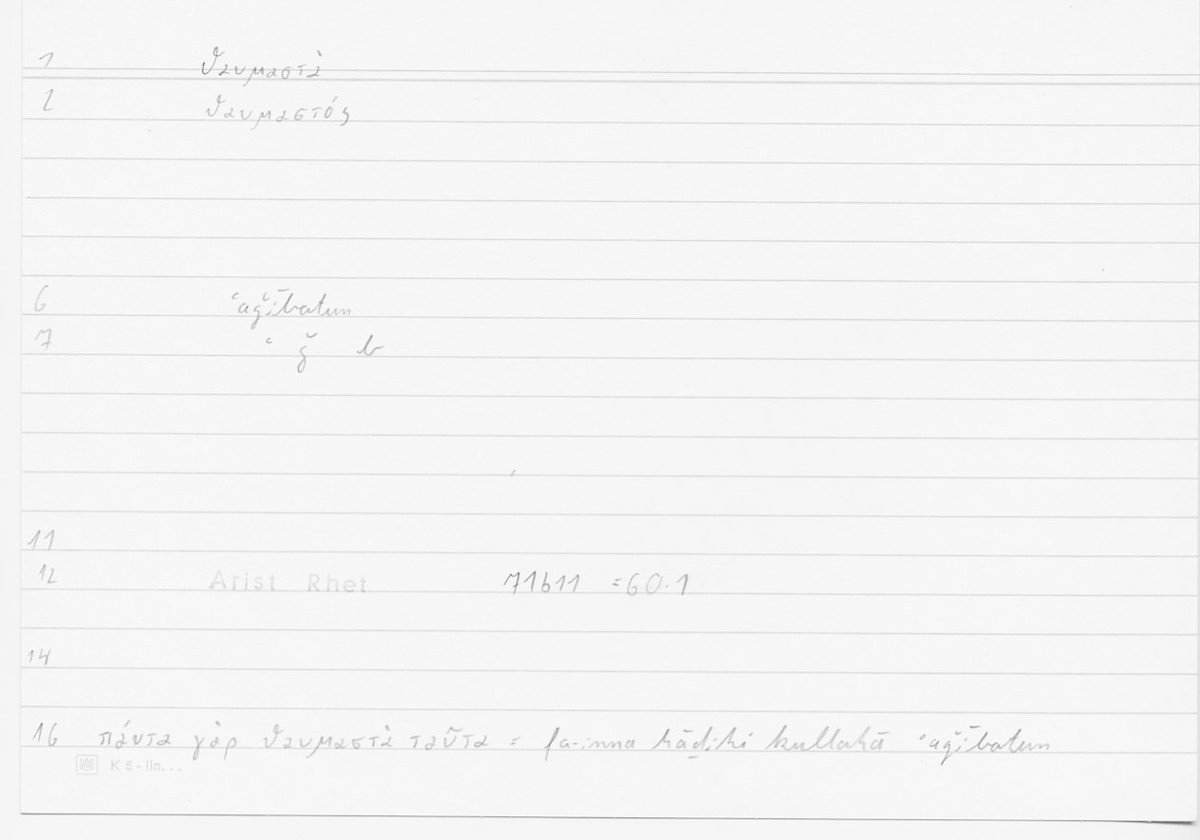 1 θαυμαστὰ
2 θαυμαστός
6 ʿaǧībatun
7 ʿ ǧ b
11
12 Arist Rhet 71b11 =60.1
14
16 πάντα γὰρ θαυμαστὰ ταῦτα = fa-inna hāḏihi kullahā ʿaǧībatun